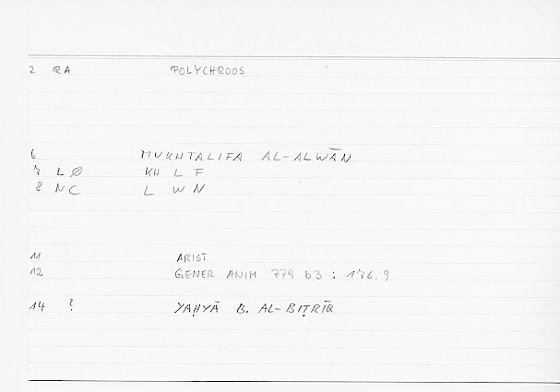 2 RA POLYCHROOS
6 MUKHTALIFA AL-ALWĀN
7 LØ KH L F
8 NC L W N
11 ARIST
12 GENER ANIM 779 b3 : 176.9
14 ? YAḤYĀ B. AL-BIṬRĪQ